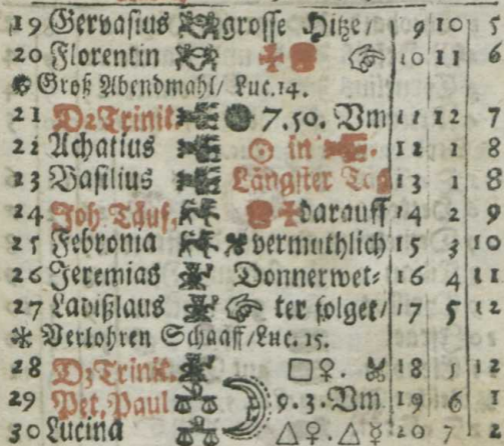 19 Gervasius grosse Hitze/ 9 10 5
20 Florentin 10 11 6
Groß Abendmahl/ Luc.14.
21 D2Trinit. 7.50. Vm 11 12 7
22 Achatius ☉ in 12 1 8
23 Basilius Längster Tag 13 1 8
24 Joh Täuf. darauff 14 2 9
25 Febronia vermuthlich 15 3 10
26 Jeremias Donnerwet⸗ 16 4 11
27 Ladißlaus ter folget/ 17 5 12
Verlohren Schaaff/Luc. 15.
28 D3Trinit. □♀. 18 5 12
29 Pet. Paul 9.3.Vm 19 6 1
30 Lucina △♀. △♉ 20 7 2